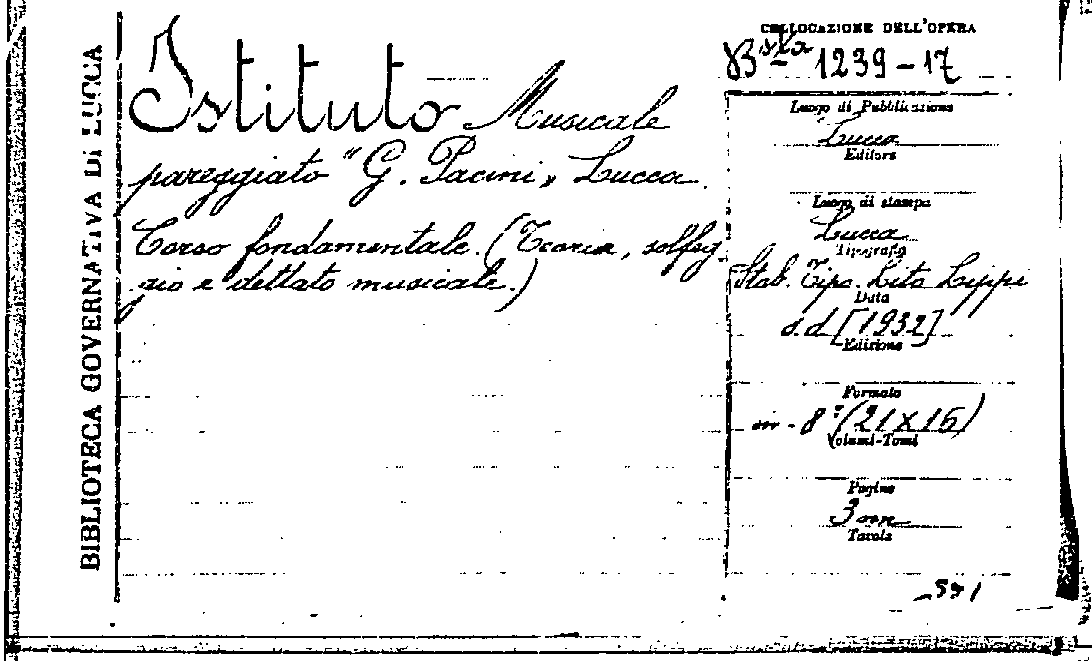 BIBLIOTECA GOVERNATIVA DI LUCCA
Istituto Musicale
pareggiato "G. Pacini" Lucca.
Corso fondamentale. (Teoria, solfeg-
gio e dettato musicale.)
COLLOCAZIONE DELL'OPERA
Bsta 1239-17
Luogo di Pubblicazione
Lucca
Editore
Luogo di stampa
Lucca
Tipografia
Stab. Tipo. Lito Lippi
Data
s.d. [1932]
Edizione
Formato
in-8° (21x15)
Volumi-Tomi
Pagine
3 nn
Tavole